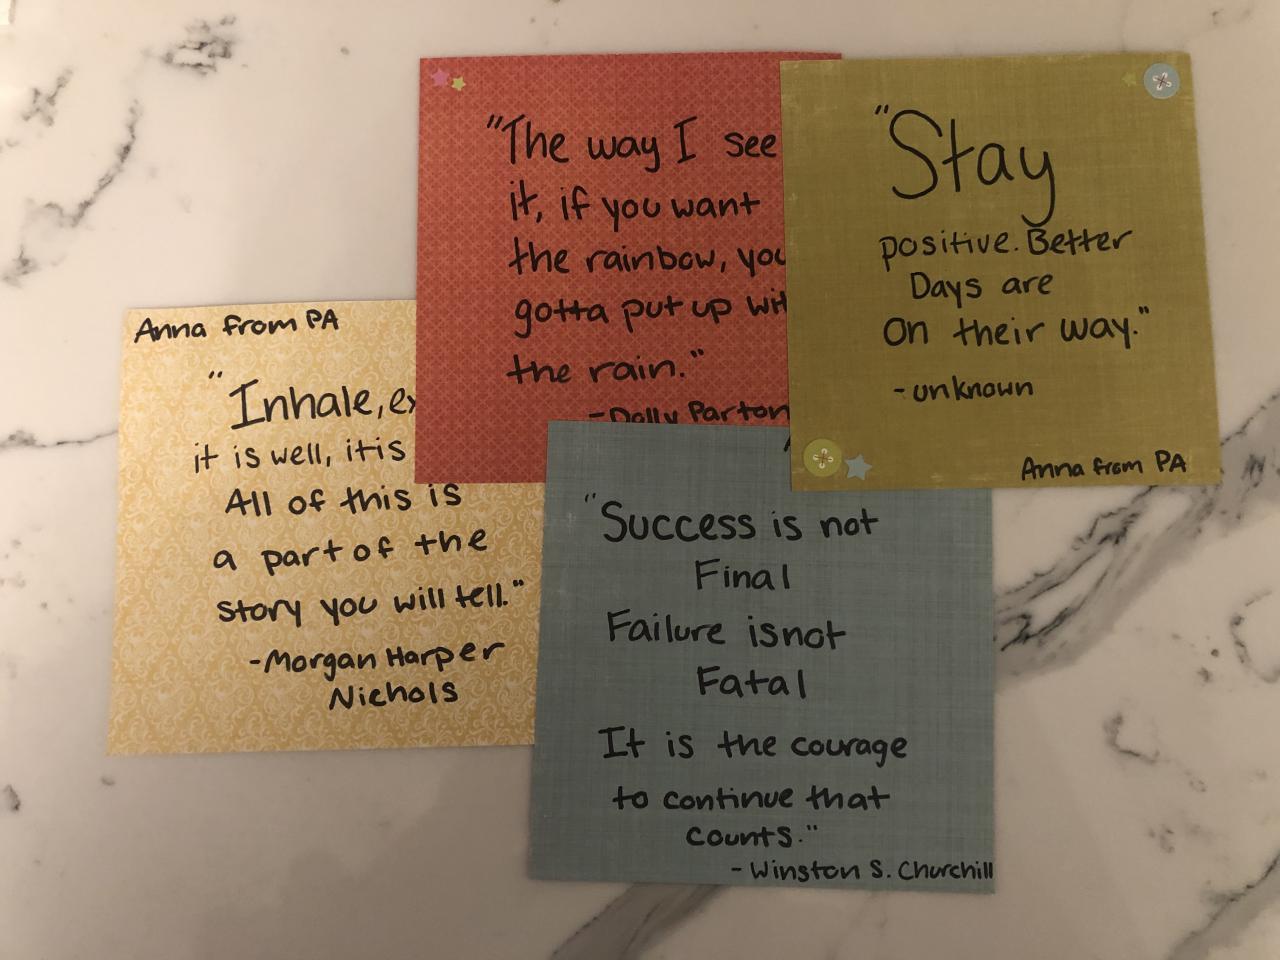 Anna from PA
"Inhale, ex
it is well, it is
All of this is
a part of the
story you will tell."
-Morgan Harper
Nichols
"The way I see
it, if you want
the rainbow, you
gotta put up wit
the rain."
-Dolly Parton
"Stay
positive. Better
Days are
On their way."
-unknown
Anna from PA
"Success is not
Final
Failure is not
Fatal
It is the courage
to continue that
counts."
- Winston S. Churchill